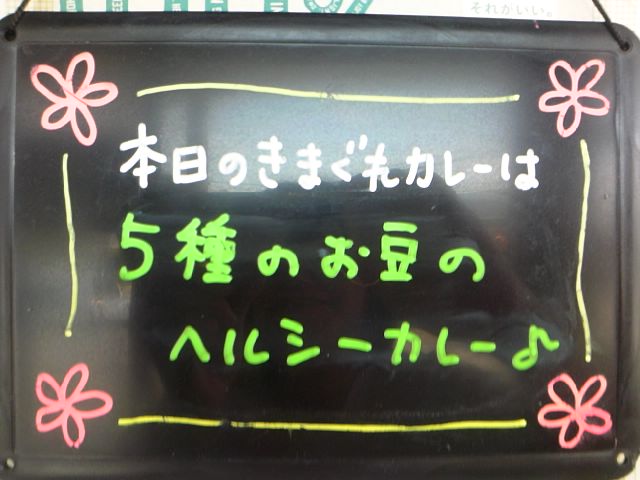 それがいい。
本日のきまぐれカレーは
5種のお豆の
ヘルシーカレー♪